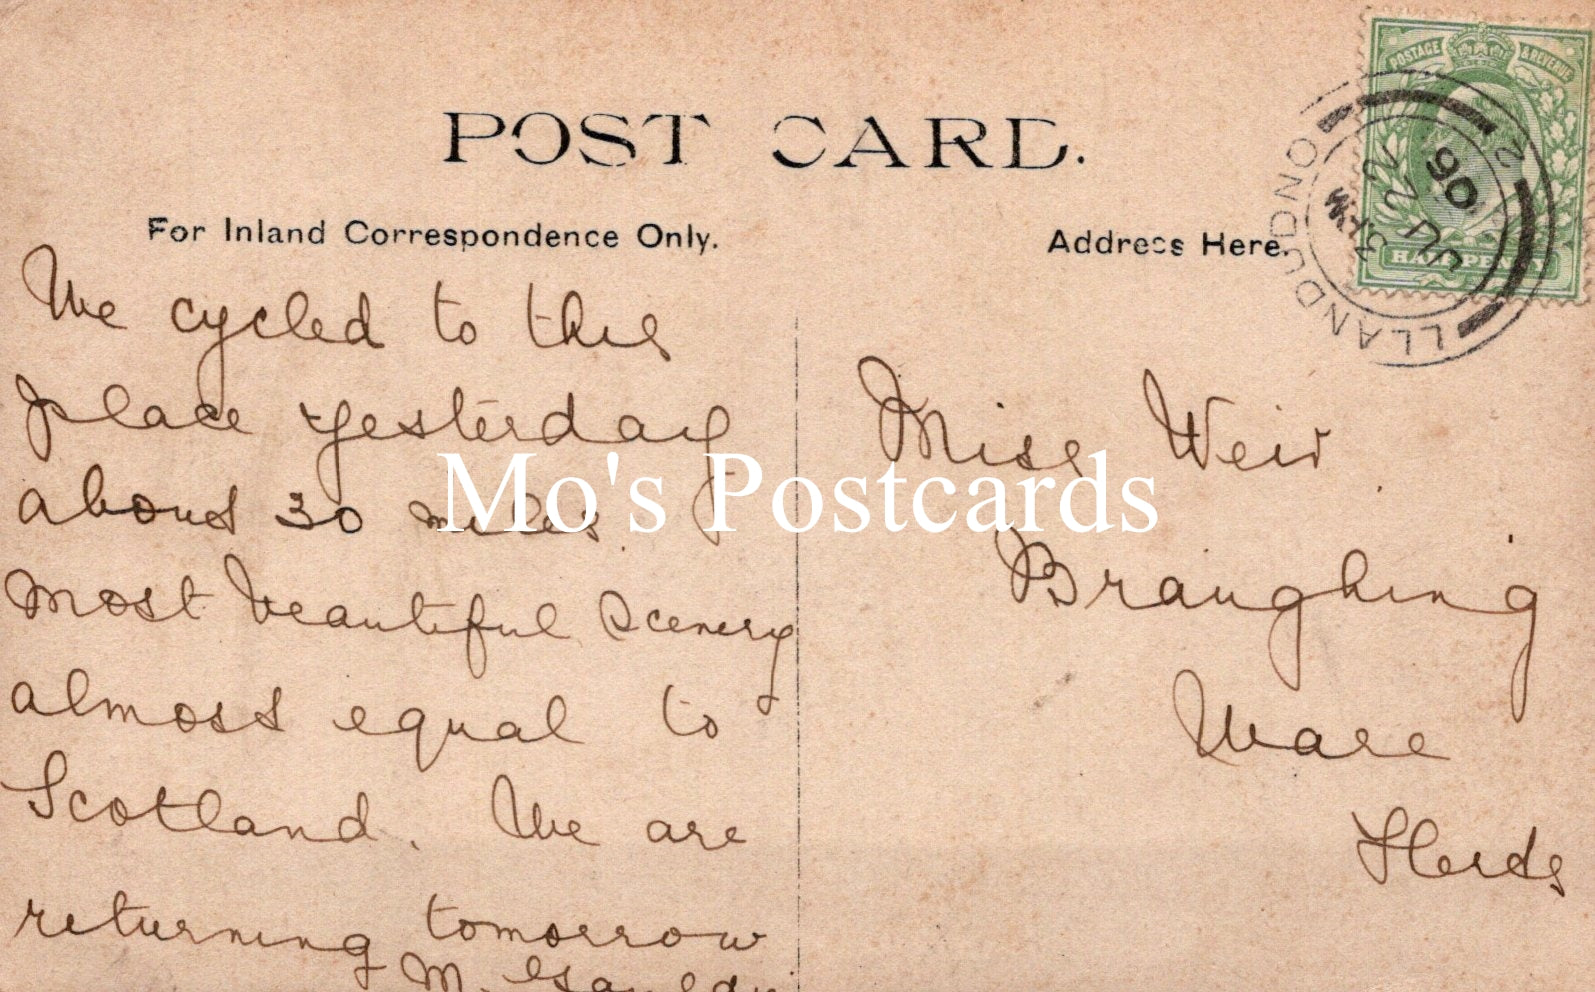 POST CARD.
For Inland Correspondence Only.
Address Here.
POSTAGE & REVENUE
HALFPENNY
LLANDUDNO
JU 22
06
2
We cycled to this
place yesterday
about 30 miles.
most beautiful scenery
almost equal to
Scotland. We are
returning tomorrow
M.
Miss Weir
Braughing
Ware
Herts
Mo's Postcards